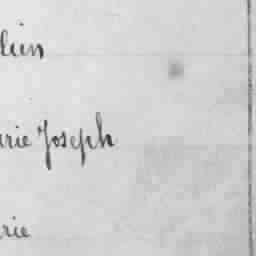 lien
arie Joseph
rie